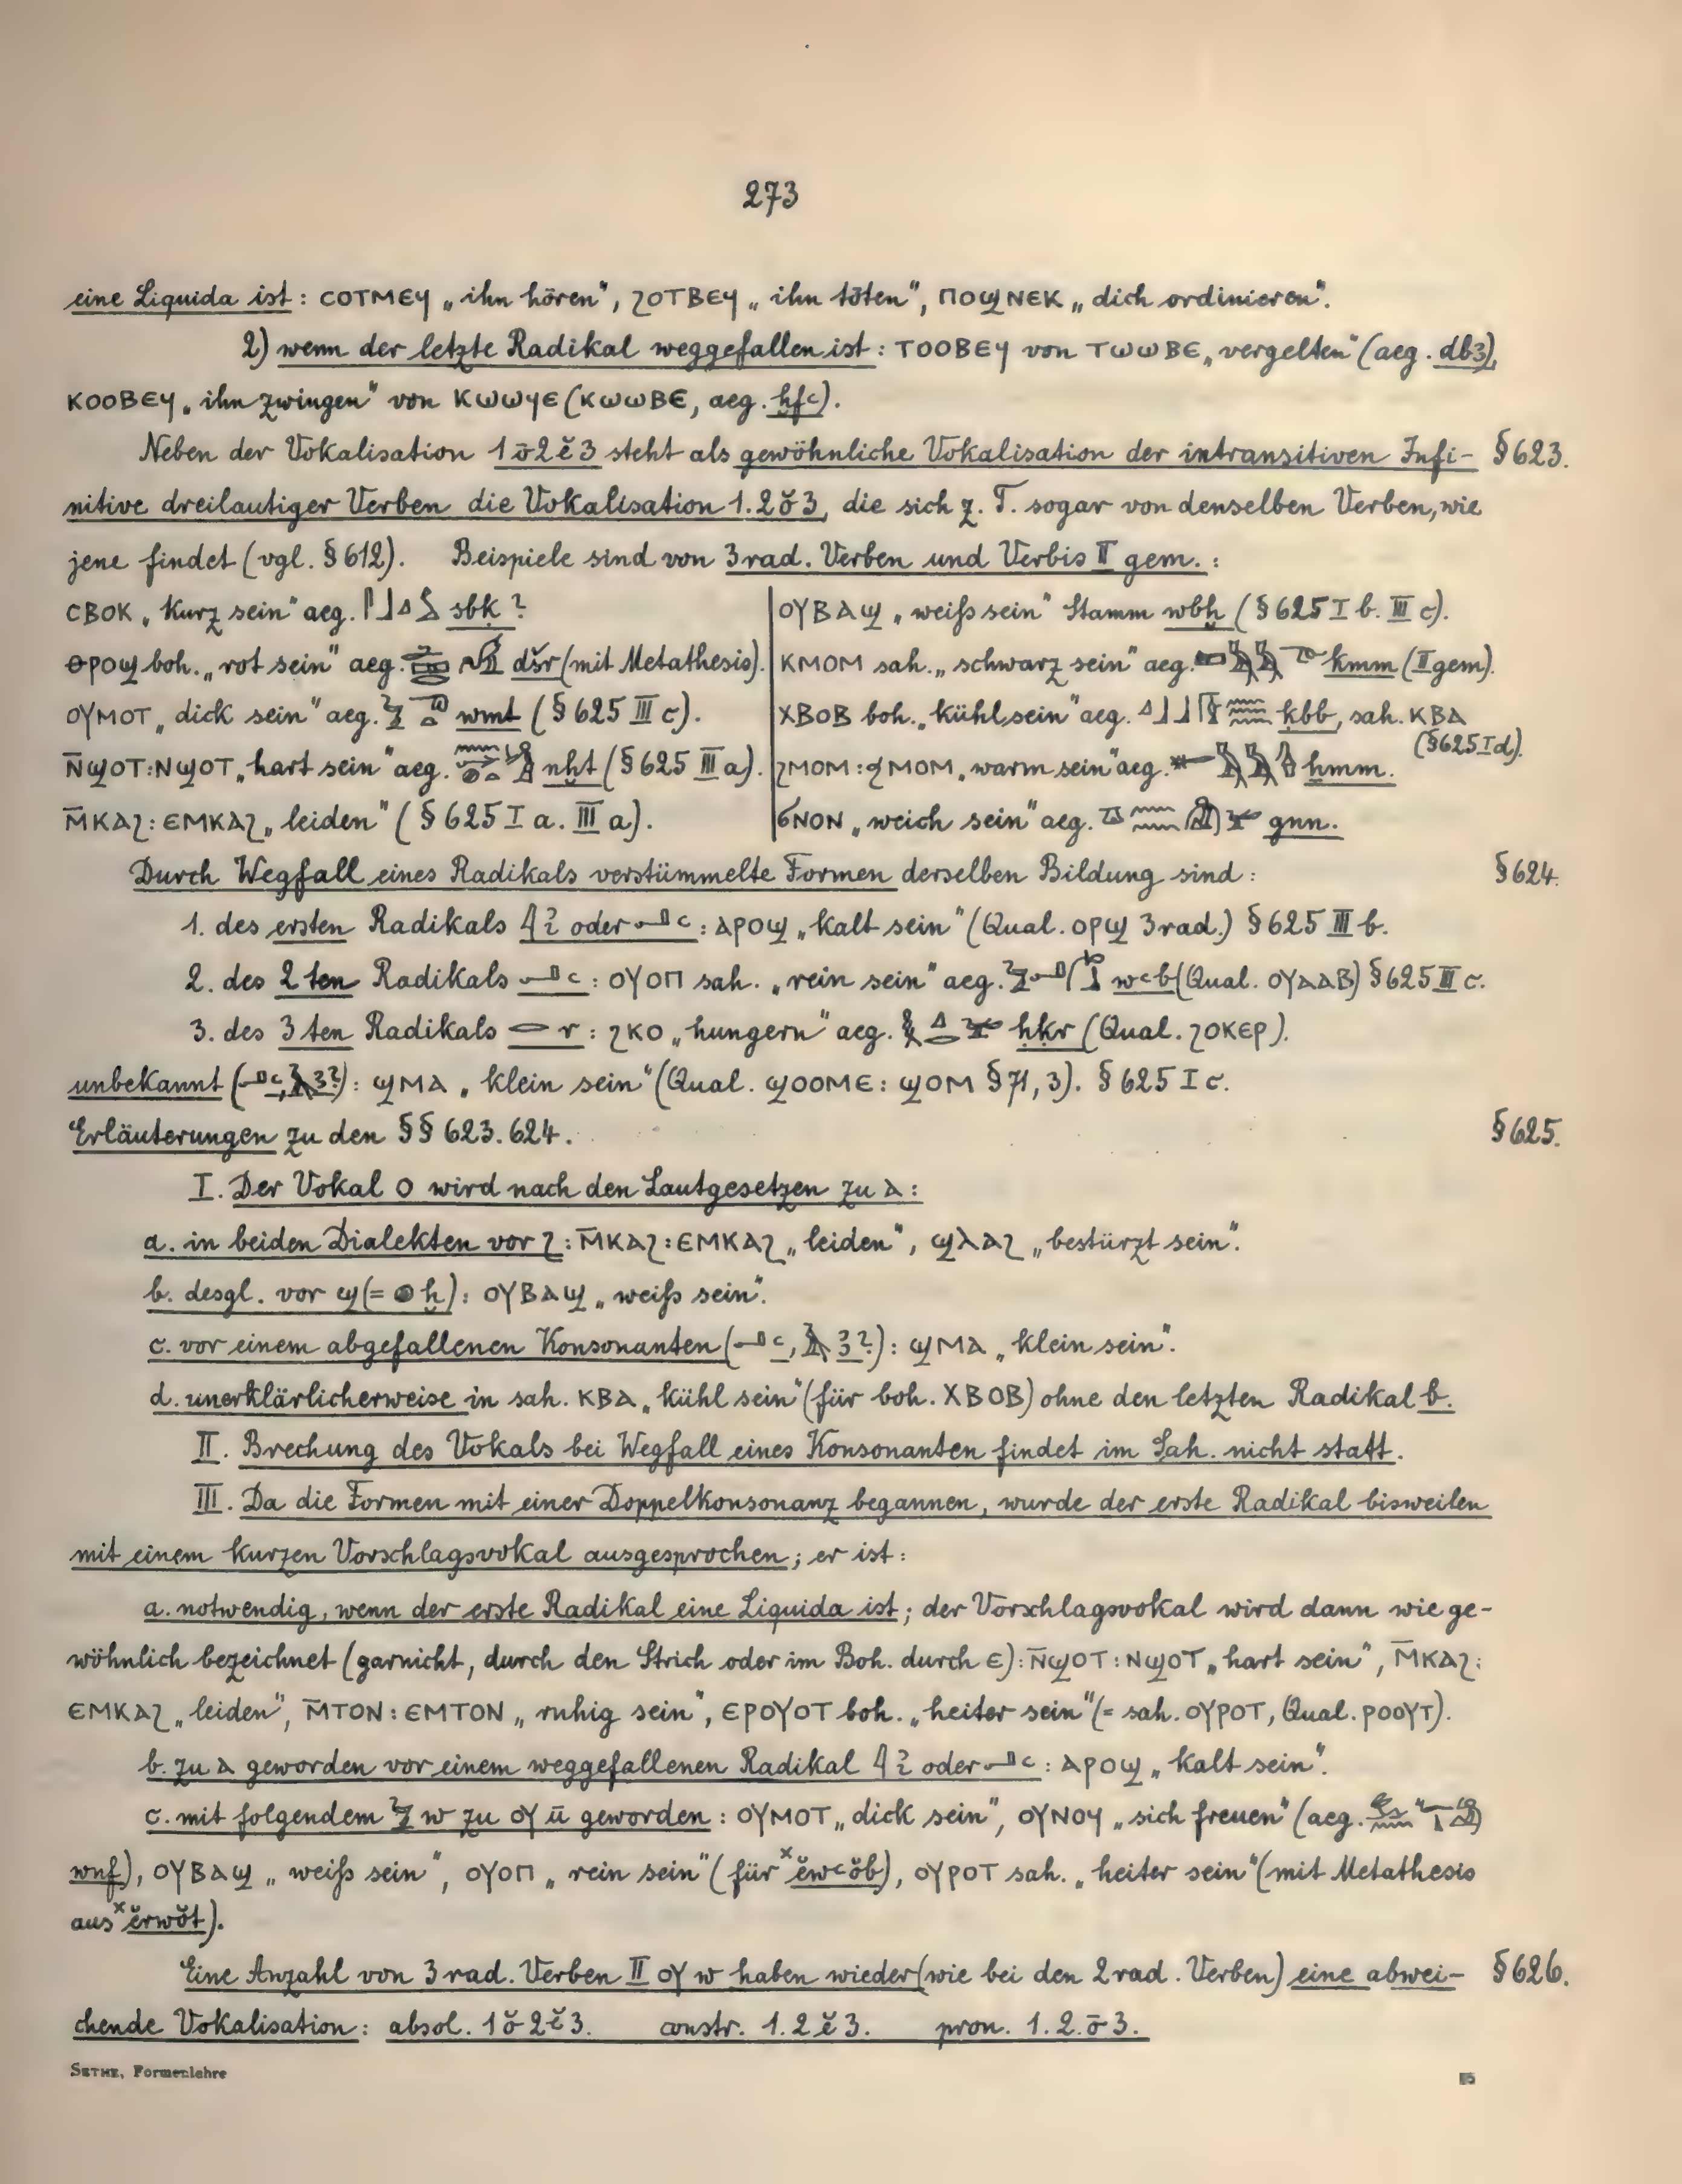 273
eine Liquida ist: ⲤⲞⲦⲘⲈϤ „ihn hören“, ϨⲞⲦⲂⲈϤ „ihn töten“, ⲠⲞϢⲚⲈⲔ „dich ordinieren“.
2) wenn der letzte Radikal weggefallen ist: ⲦⲞⲞⲂⲈϤ von ⲦⲰⲰⲂⲈ „vergelten“ (aeg. dbꜣ),
ⲔⲞⲞⲂⲈϤ „ihn zwingen“ von ⲔⲰⲰϤⲈ (ⲔⲰⲰⲂⲈ, aeg. ḫfꜥ).
Neben der Vokalisation 1ō2ĕ3 steht als gewöhnliche Vokalisation der intransitiven Infi- § 623.
nitive dreilautiger Verben die Vokalisation 1.2ŏ3, die sich z. T. sogar von denselben Verben, wie
jene findet (vgl. § 612). Beispiele sind von 3rad. Verben und Verbis II gem.:
ⲤⲂⲞⲔ „kurz sein“ aeg. sbḳ? ⲞⲨⲂⲀϢ „weiß sein“ Stamm wbḫ (§ 625 I b. III c).
ⲐⲢⲞϢ boh. „rot sein“ aeg. dšr (mit Metathesis). ⲔⲘⲞⲘ sah. „schwarz sein“ aeg. kmm (II gem).
ⲞⲨⲘⲞⲦ „dick sein“ aeg. wmt (§ 625 III c). ⲬⲂⲞⲂ boh. „kühl sein“ aeg. ḳbb, sah. ⲔⲂⲀ (§ 625 I d).
Ⲛ̄ϢⲞⲦ: ⲚϢⲞⲦ „hart sein“ aeg. nḫt (§ 625 III a). ϨⲘⲞⲘ: ϦⲘⲞⲘ „warm sein“ aeg. ẖmm.
Ⲙ̄ⲔⲀϨ: ⲈⲘⲔⲀϨ „leiden“ (§ 625 I a. III a). ϬⲚⲞⲚ „weich sein“ aeg. gnn.
Durch Wegfall eines Radikals verstümmelte Formen derselben Bildung sind: § 624.
1. des ersten Radikals 𓇋 ꜣ oder 𓂝 ꜥ: ⲀⲢⲞϢ „kalt sein“ (Qual. ⲞⲢϢ 3rad.) § 625 III b.
2. des 2ten Radikals 𓂝 ꜥ: ⲞⲨⲞⲠ sah. „rein sein“ aeg. wꜥb (Qual. ⲞⲨⲀⲀⲂ) § 625 III c.
3. des 3ten Radikals 𓂋 r: ϨⲔⲞ „hungern“ aeg. ḥḳr (Qual. ϨⲞⲔⲈⲢ).
unbekannt (𓂝 ꜥ, 𓄿 ꜣ?): ϢⲘⲀ „klein sein“ (Qual. ϢⲞⲞⲘⲈ: ϢⲞⲘ § 71, 3). § 625 I c.
Erläuterungen zu den §§ 623. 624. § 625.
I. Der Vokal Ⲟ wird nach den Lautgesetzen zu Ⲁ:
a. in beiden Dialekten vor Ϩ: Ⲙ̄ⲔⲀϨ: ⲈⲘⲔⲀϨ „leiden“, ϢⲖⲀϨ „bestürzt sein“.
b. desgl. vor Ϣ (= 𓐍 ḫ): ⲞⲨⲂⲀϢ „weiß sein“.
c. vor einem abgefallenen Konsonanten (𓂝 ꜥ, 𓄿 ꜣ?): ϢⲘⲀ „klein sein“.
d. unerklärlicherweise in sah. ⲔⲂⲀ „kühl sein“ (für boh. ⲬⲂⲞⲂ) ohne den letzten Radikal b.
II. Brechung des Vokals bei Wegfall eines Konsonanten findet im Sah. nicht statt.
III. Da die Formen mit einer Doppelkonsonanz begannen, wurde der erste Radikal bisweilen
mit einem kurzen Vorschlagsvokal ausgesprochen; er ist:
a. notwendig, wenn der erste Radikal eine Liquida ist; der Vorschlagsvokal wird dann wie ge-
wöhnlich bezeichnet (garnicht, durch den Strich oder im Boh. durch Ⲉ): Ⲛ̄ϢⲞⲦ: ⲚϢⲞⲦ „hart sein“, Ⲙ̄ⲔⲀϨ:
ⲈⲘⲔⲀϨ „leiden“, Ⲙ̄ⲦⲞⲚ: ⲈⲘⲦⲞⲚ „ruhig sein“, ⲈⲢⲞⲨⲞⲦ boh. „heiter sein“ (= sah. ⲞⲨⲢⲞⲦ, Qual. ⲢⲞⲞⲨⲦ).
b. zu Ⲁ geworden vor einem weggefallenen Radikal 𓇋 ꜣ oder 𓂝 ꜥ: ⲀⲢⲞϢ „kalt sein“.
c. mit folgendem 𓅱 w zu ⲞⲨ ū geworden: ⲞⲨⲘⲞⲦ „dick sein“, ⲞⲨⲚⲞϤ „sich freuen“ (aeg.
wnf), ⲞⲨⲂⲀϢ „weiß sein“, ⲞⲨⲞⲠ „rein sein“ (für ˣĕwꜥŏb), ⲞⲨⲢⲞⲦ sah. „heiter sein“ (mit Metathesis
aus ˣĕrwŏt).
Eine Anzahl von 3rad. Verben II ⲞⲨ w haben wieder (wie bei den 2rad. Verben) eine abwei- § 626.
chende Vokalisation: absol. 1ŏ2ĕ3. constr. 1.2ĕ3. pron. 1.2.ō3.
SETHE, Formenlehre